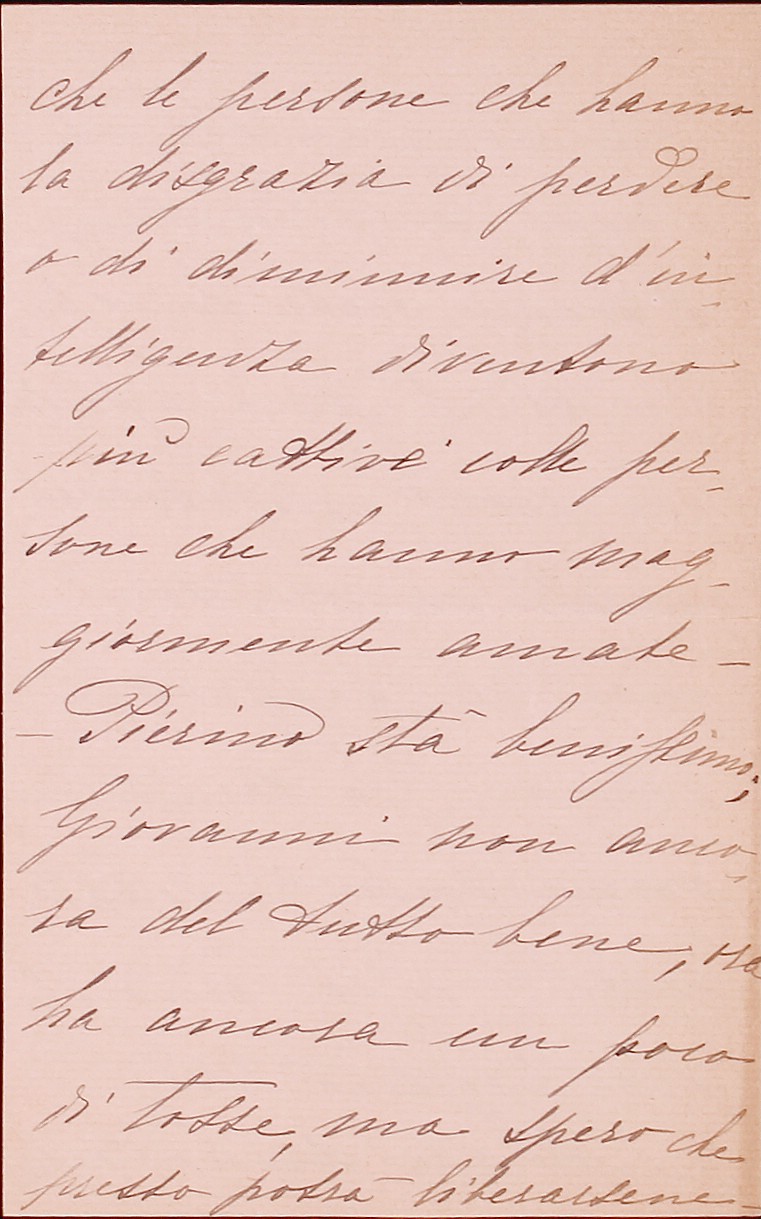 che le persone che hanno
la disgrazia di perdere
o di diminuire d'in-
telligenza diventono
più cattive colle per-
sone che hanno mag-
giormente amate -
- Pierino stà benissimo;
Giovanni non anco-
ra del tutto bene, ora
ha ancora un poco
di tosse, ma spero che
presto potrà liberarsene -